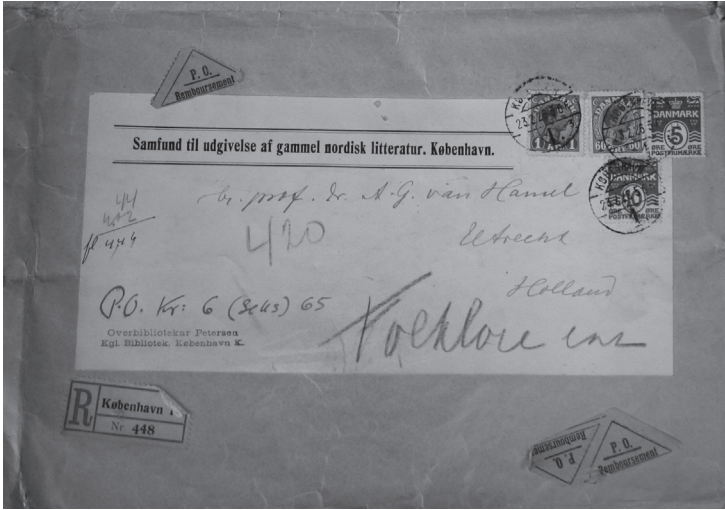 P. O.
Remboursement
Samfund til udgivelse af gammel nordisk litteratur. København.
DANMARK
60 ØRE 60
DANMARK
5
ØRE ØRE
POSTFRIMÆRKE
DANMARK
10
ØRE ØRE
POSTFRIMÆRKE
hr. prof. dr. A. G. van Hamel
Utrecht
Holland
44
402
fl 4,44
420
P.O. Kr: 6 (Seks) 65
Overbibliotekar Petersen
Kgl. Bibliotek. København K.
Folklore
R
København
Nr 448
P. O.
Remboursement
P. O.
Remboursement